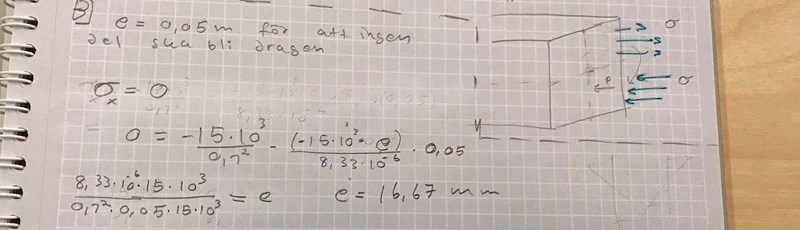 B) e = 0,05 m för att ingen
del ska bli dragen
σx = 0
0 = -15·10³/0,1² - (-15·10³·e)/8,33·10⁻⁶ · 0,05
8,33·10⁻⁶·15·10³/0,1²·0,05·15·10³ = e e = 16,67 mm
σ
P
σ